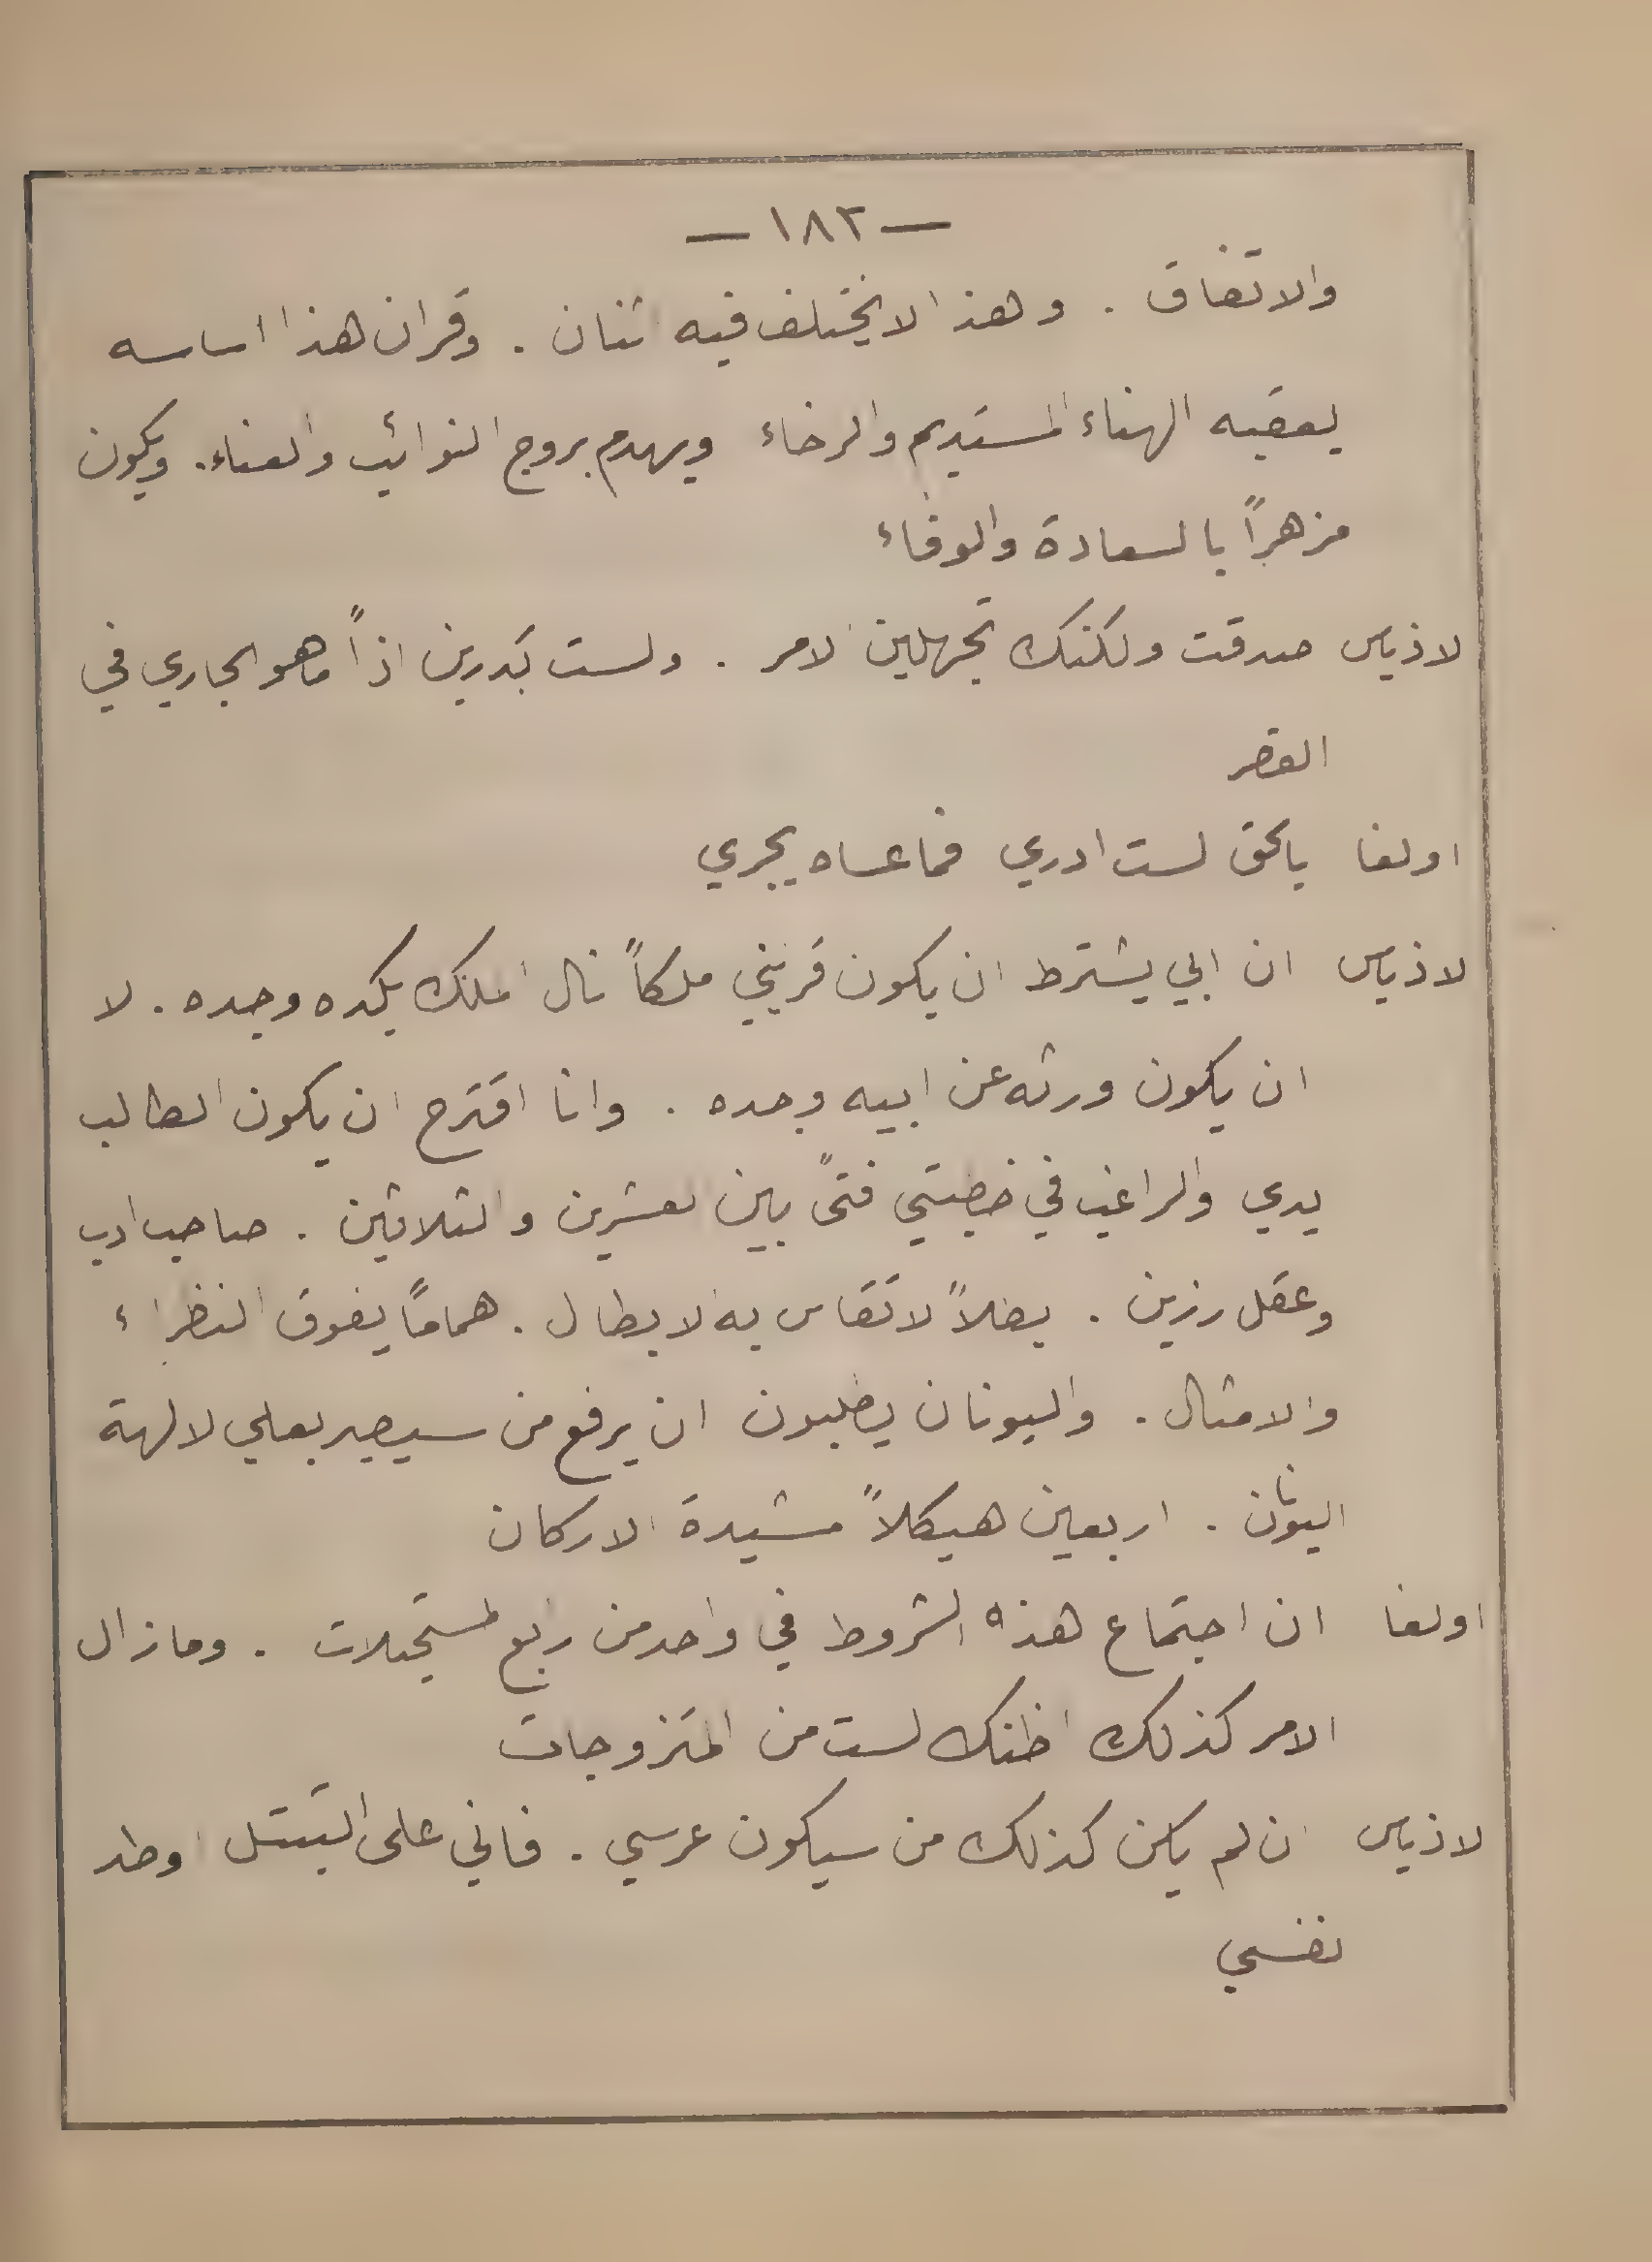 — ١٨٢ —
والاتفاق . وهذا لا يختلف فيه اثنان . وقران هذا اساسه
يعقبه الهناء المستديم والرخاء ويهدم بروج النوائب والعناء. ويكون
مزهراً بالسعادة والوفاء
لاذياس صدقت ولكنك تجهلين الامر . ولست تدرين اذاً ما هو الجاري في
القصر
اولغا بالحق لست ادري فما عساه يجري
لاذياس ان ابي يشترط ان يكون قريني ملكاً نال الملك بكده وجده . لا
ان يكون ورثه عن ابيه وجده . وانا اقترح ان يكون الطالب
يدي والراغب في خطبتي فتىً بين العشرين والثلاثين . صاحب ادب
وعقل رزين . بطلاً لا تقاس به الابطال . هماماً يفوق النظراء
والامثال . واليونان يطلبون ان يرفع من سيصير بعلي لالهة
اليونان . اربعين هيكلاً مشيدة الاركان
اولغا ان اجتماع هذه الشروط في واحد من رابع المستحيلات . وما زال
الامر كذلك اظنك لست من المتزوجات
لاذياس ان لم يكن كذلك من سيكون عرسي . فاني على التبتل اوطد
نفسي